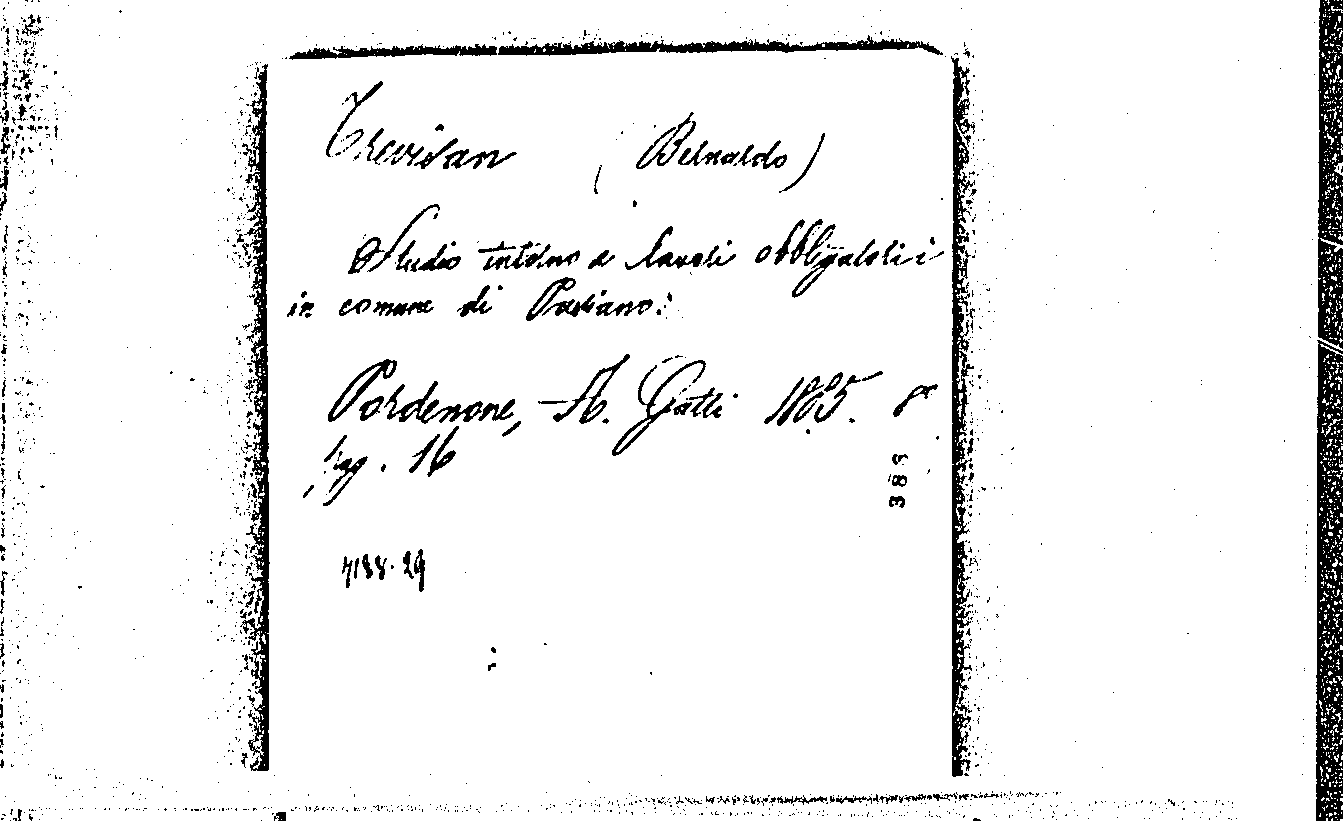 Trevisan (Bernardo)
Studio intorno a lavori obbligatorii
in comune di Pasiano.
Pordenone, A. Gatti 1885. 8°
pag. 16
4188.29
385